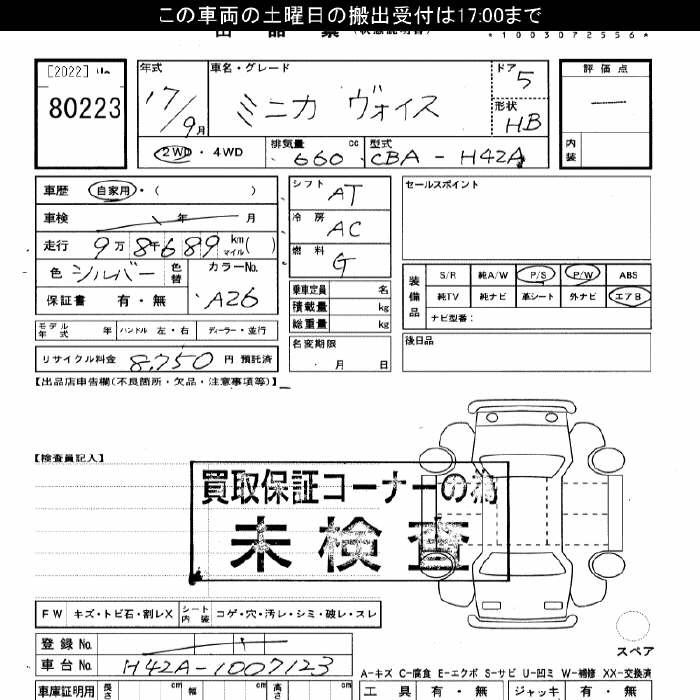 この車両の土曜日の搬出受付は17:00まで
*1003072556*
[2022]
80223
年式
17/9月
車名・グレード
ミニカ ヴォイス
ドア
5
形状
HB
評価点
内装
2WD・4WD
排気量 660 cc
型式 CBA-H42A
車歴 自家用・( )
車検 年 月
走行 9万8千689 km マイル( )
色 シルバー 色替
カラーNo. A26
保証書 有・無
シフト AT
冷房 AC
燃料 G
乗車定員 名
積載量 kg
総重量 kg
名変期限
・月 日
セールスポイント
装備品
S/R 純A/W P/S P/W ABS
純TV 純ナビ 革シート 外ナビ エアB
ナビ型番:
後日品
モデル年式 年 ハンドル 左・右 ディーラー・並行
リサイクル料金 8,750 円 預託済
【出品店申告欄(不良箇所・欠品・注意事項等)】
【検査員記入】
買取保証コーナーの為
未検査
FW キズ・トビ石・割レX シート内装 コゲ・穴・汚レ・シミ・破レ・スレ
登録No.
車台No. H42A-1007123
スペア
A-キズ C-腐食 E-エクボ S-サビ U-凹ミ W-補修 XX-交換済
車庫証明用 長さ cm 幅 cm 高さ cm
工具 有・無 ジャッキ 有・無